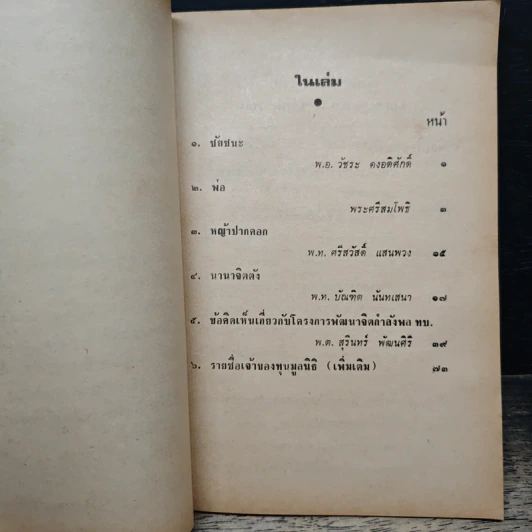 ในเล่ม
หน้า
๑. ชัยชนะ
พ.อ. วัชระ คงอดิศักดิ์ ๑
๒. พ่อ
พระศรีสมโพธิ ๓
๓. หญ้าปากคอก
พ.ท. ศรีสวัสดิ์ แสนพวง ๑๕
๔. นานาจิตตัง
พ.ท. บัณฑิต นันทเสนา ๑๗
๕. ข้อคิดเห็นเกี่ยวกับโครงการพัฒนาจิตกำลังพล ทบ.
พ.ต. สุรินทร์ พัฒนศิริ ๓๙
๖. รายชื่อเจ้าของทุนมูลนิธิ (เพิ่มเติม) ๗๓